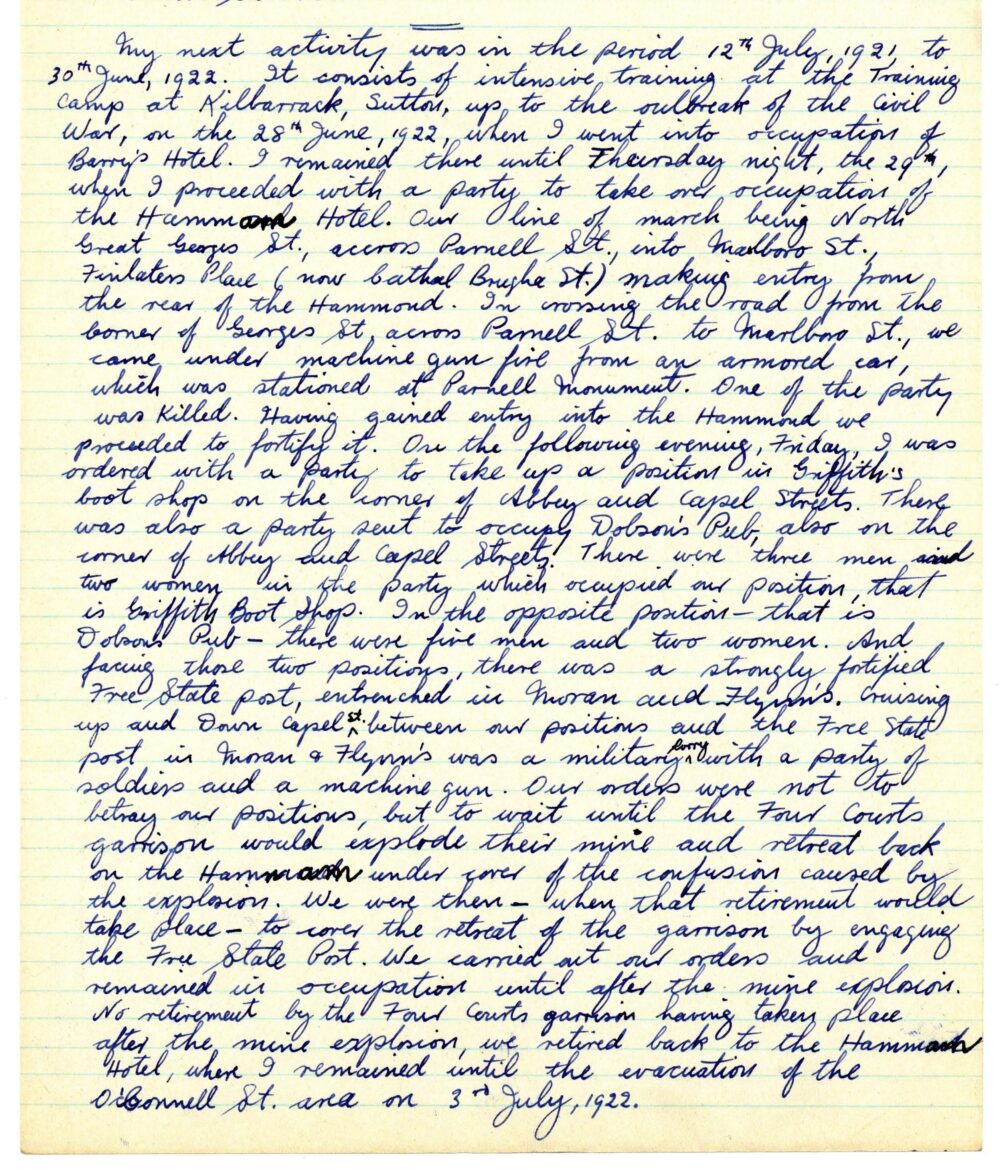 My next activity was in the period 12th July, 1921, to
30th June, 1922. It consists of intensive, training at the Training
Camp at Kilbarrack, Sutton, up to the outbreak of the Civil
War, on the 28th June, 1922, when I went into occupation of
Barry's Hotel. I remained there until Thursday night, the 29th,
when I proceeded with a party to take over occupation of
the Hammam Hotel. Our line of march being North
Great Georges St., accross Parnell St., into Marlboro St.,
Finlaters Place (now Cathal Brugha St.) making entry from
the rear of the Hammond. In crossing the road from the
corner of Georges St. across Parnell St. to Marlboro St., we
came under machine gun fire from an armored car,
which was stationed at Parnell Monument. One of the party
was killed. Having gained entry into the Hammond we
proceeded to fortify it. On the following evening, Friday, I was
ordered with a party to take up a position in Griffith's
boot shop on the corner of Abbey and Capel Streets. There
was also a party sent to occupy Dobson's Pub, also on the
corner of Abbey and Capel Streets. There were three men and
two women in the party which occupied our position, that
is Griffith Boot Shop. In the opposite position – that is
Dobsons Pub – there were five men and two women. And
facing those two positions, there was a strongly fortified
Free State post, entrenched in Moran and Flynn's. Cruising
up and Down Capel St. between our positions and the Free State
post in Moran & Flynn's was a military lorry with a party of
soldiers and a machine gun. Our orders were not to
betray our positions, but to wait until the Four Courts
garrison would explode their mine and retreat back
on the Hammam under cover of the confusion caused by
the explosion. We were then – when that retirement would
take place – to cover the retreat of the garrison by engaging
the Free State Post. We carried out our orders and
remained in occupation until after the mine explosion.
No retirement by the Four Courts garrison having taken place
after the mine explosion, we retired back to the Hammam
Hotel, where I remained until the evacuation of the
O'Connell St. area on 3rd July, 1922.